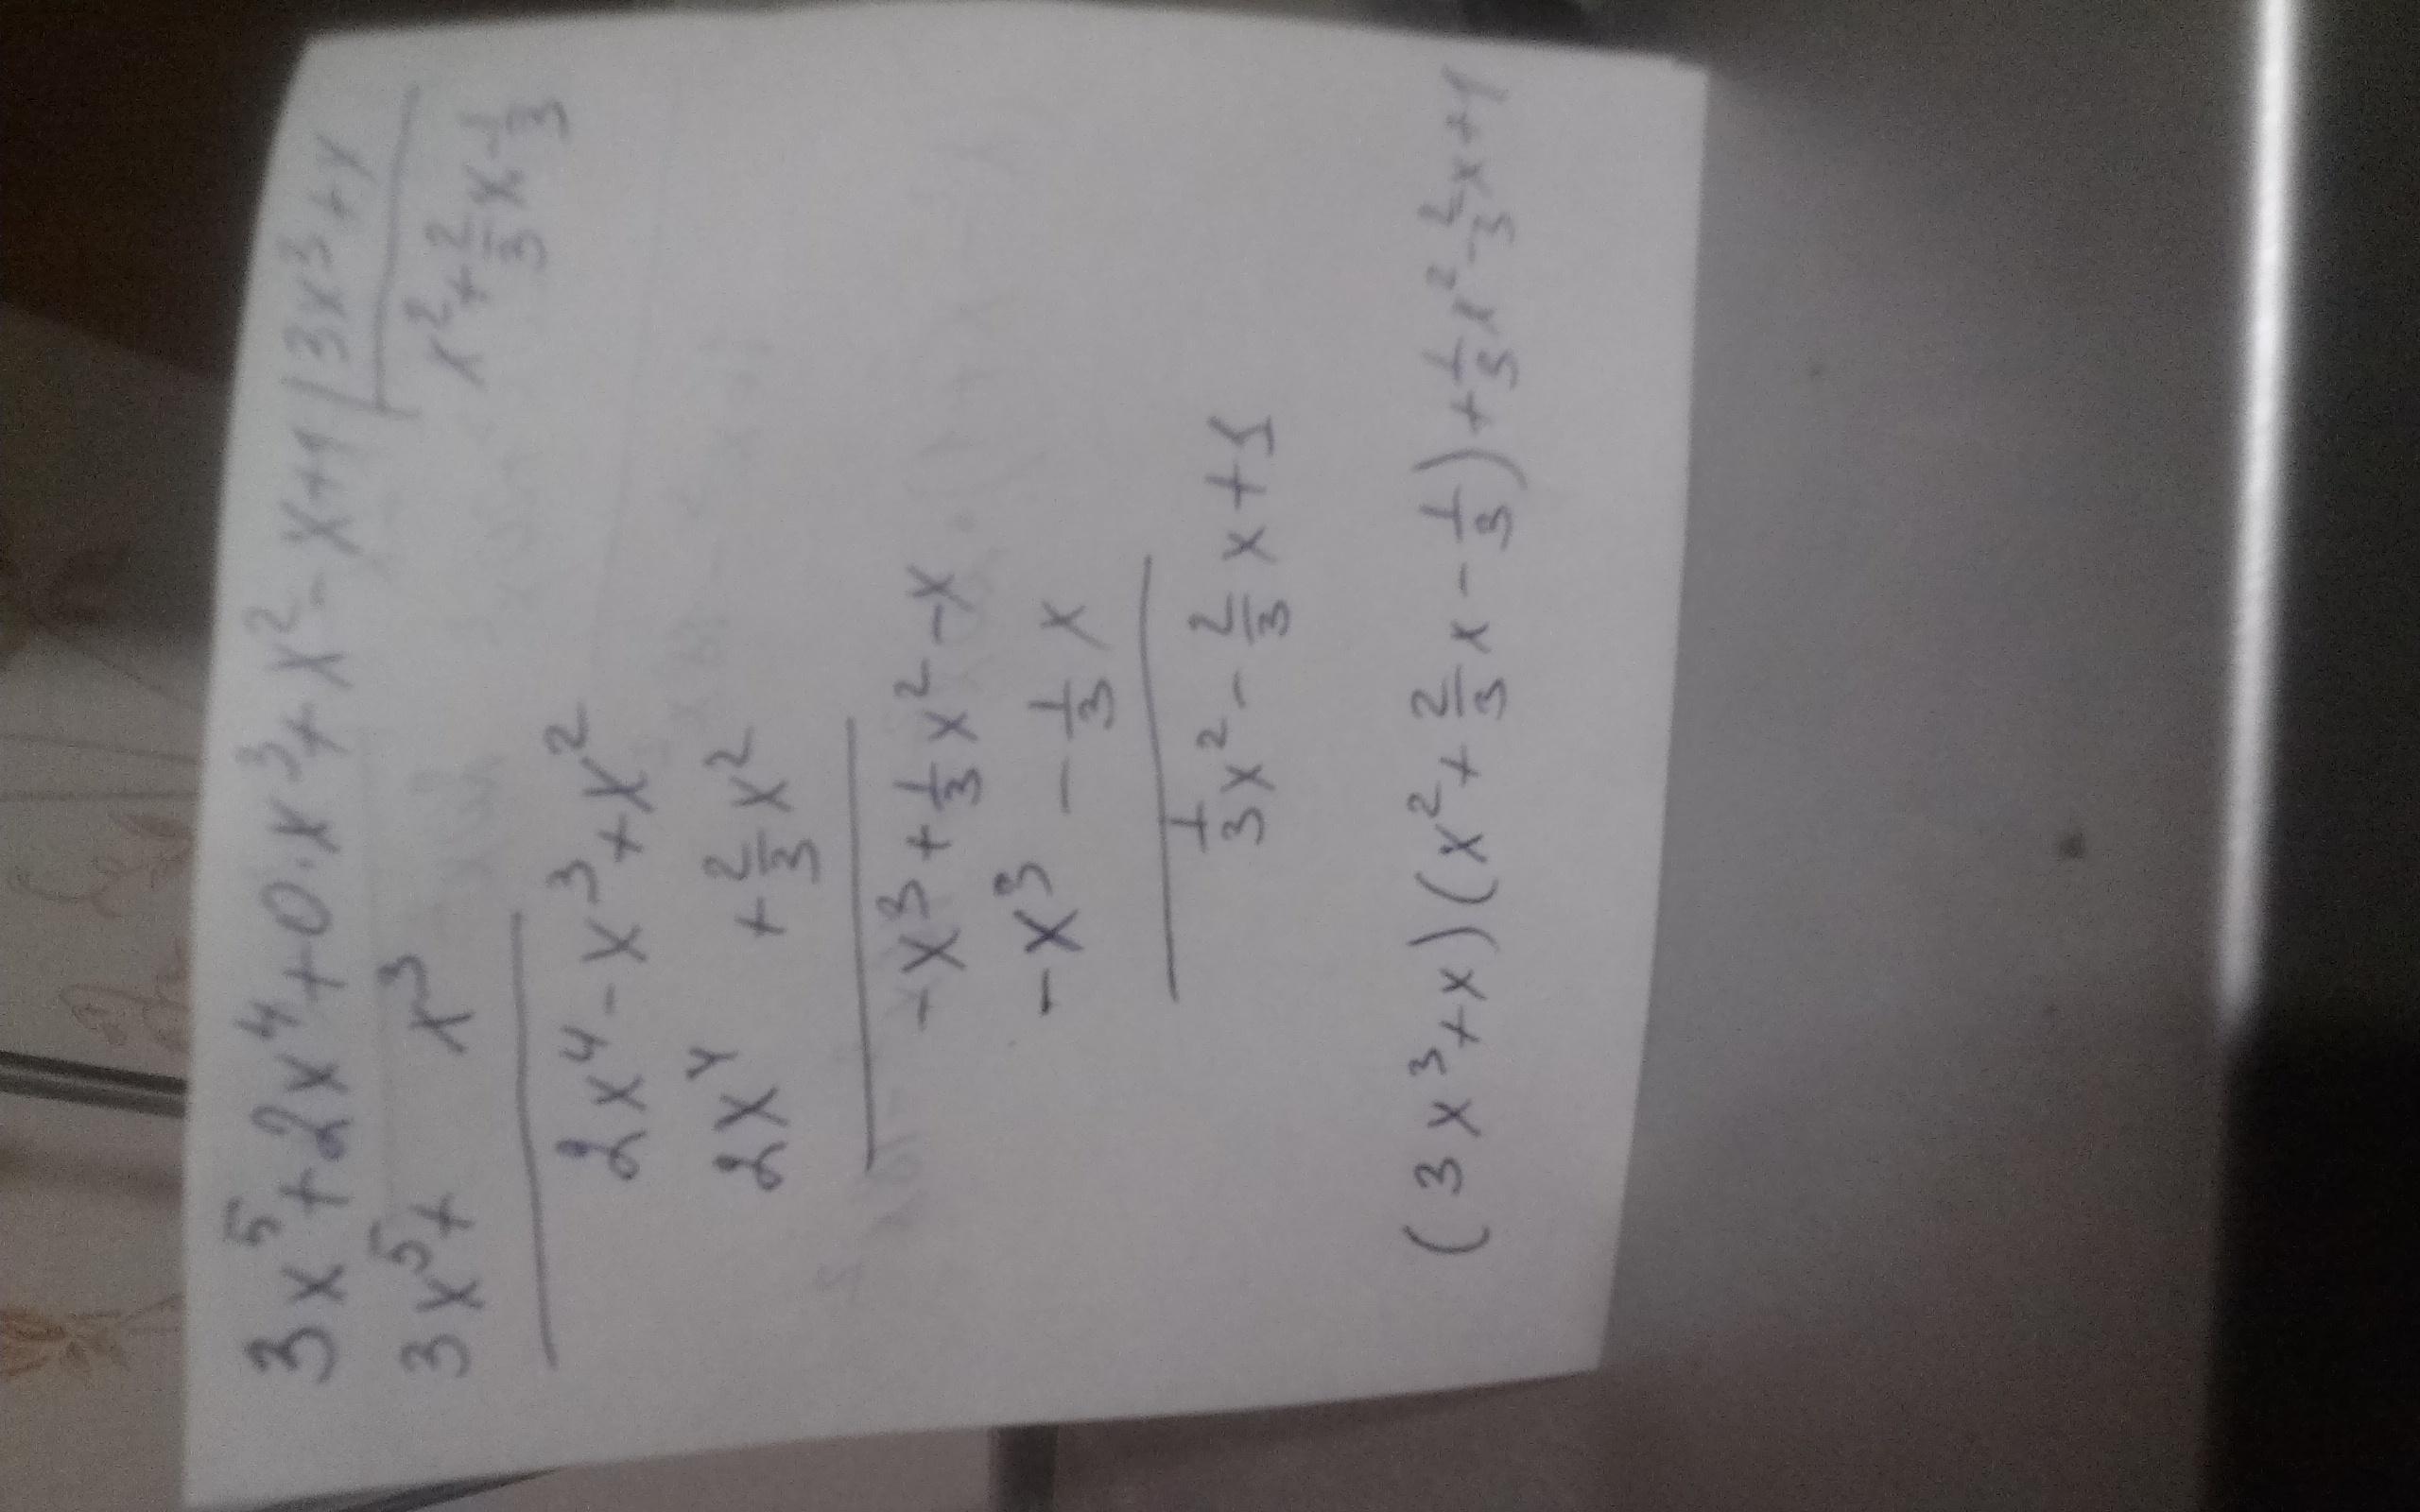 3x⁵+2x⁴+0·x³+x²-x+1 | 3x³+x
3x⁵+ x³ x²+2/3x-1/3
2x⁴-x³+x²
2x⁴ +2/3x²
-x³+1/3x²-x
-x³ -1/3x
1/3x²-2/3x+1
(3x³+x)(x²+2/3x-1/3)+1/3x²-2/3x+1